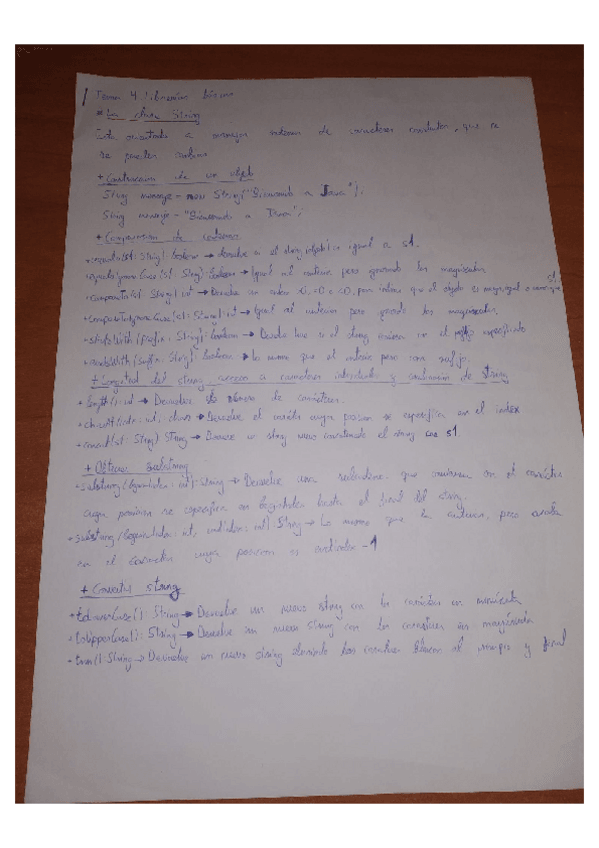 Tema 4 Librerías básicas
* La clase String
Está orientada a manejar cadenas de caracteres constantes, que
se pueden cambiar
+ Construcción de un objeto
String mensaje = new String("Bienvenido a Java");
String mensaje = "Bienvenido a Java";
+ Comparación de
+ equals(s1: String): boolean → devuelve si el string es igual a s1.
+ equalsIgnoreCase(s1: String): boolean → Igual al anterior pero ignorando las mayúsculas
+ compareTo(s1: String): int → Devuelve un entero para indicar que el objeto es mayor, igual o menor que s1
+ compareToIgnoreCase(s1: String): int → Igual al anterior pero ignorando las mayúsculas.
+ startsWith(prefix: String): boolean → si el string en el prefijo especificado
+ endsWith(suffix: String): boolean → Lo mismo que el anterior pero con sufijo.
+ Longitud del string, acceso a caracteres individuales y combinación de string
+ length(): int → Devuelve el número de caracteres.
+ charAt(index: int): char → Devuelve el carácter cuya posición se especifica en el index
+ concat(s1: String): String → Devuelve un string nuevo el string con s1.
+ Obtener substring
+ substring(beginIndex: int): String → Devuelve una subcadena que comienza en el carácter
cuya posición se especifica en beginIndex hasta el final del string.
+ substring(beginIndex: int, endIndex: int): String → Lo mismo que la anterior, pero acaba
en el carácter cuya posición es endIndex - 1
+ Convertir string
+ toLowerCase(): String → Devuelve un nuevo string con los caracteres en minúscula
+ toUpperCase(): String → Devuelve un nuevo string con los caracteres en mayúscula
+ trim(): String → Devuelve un nuevo string los caracteres blancos al principio y final